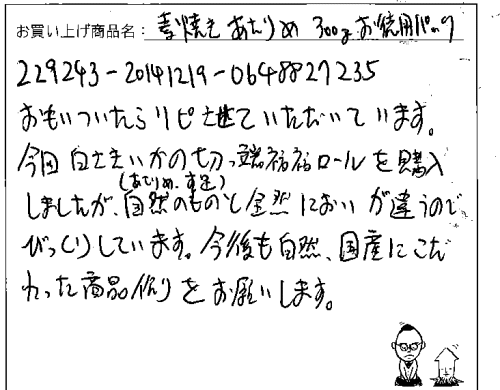 お買い上げ商品名：素焼き あたりめ 300g お徳用パック
229243-20141219-0648827235
おもいついたらリピさせていただいています。
今回 白さきいかの切っ端 福福ロールを購入
(あたりめ、すき)
しましたが、自然のものと全然においが違うので
びっくりしています。今後も自然、国産にこだ
わった商品作りをお願いします。